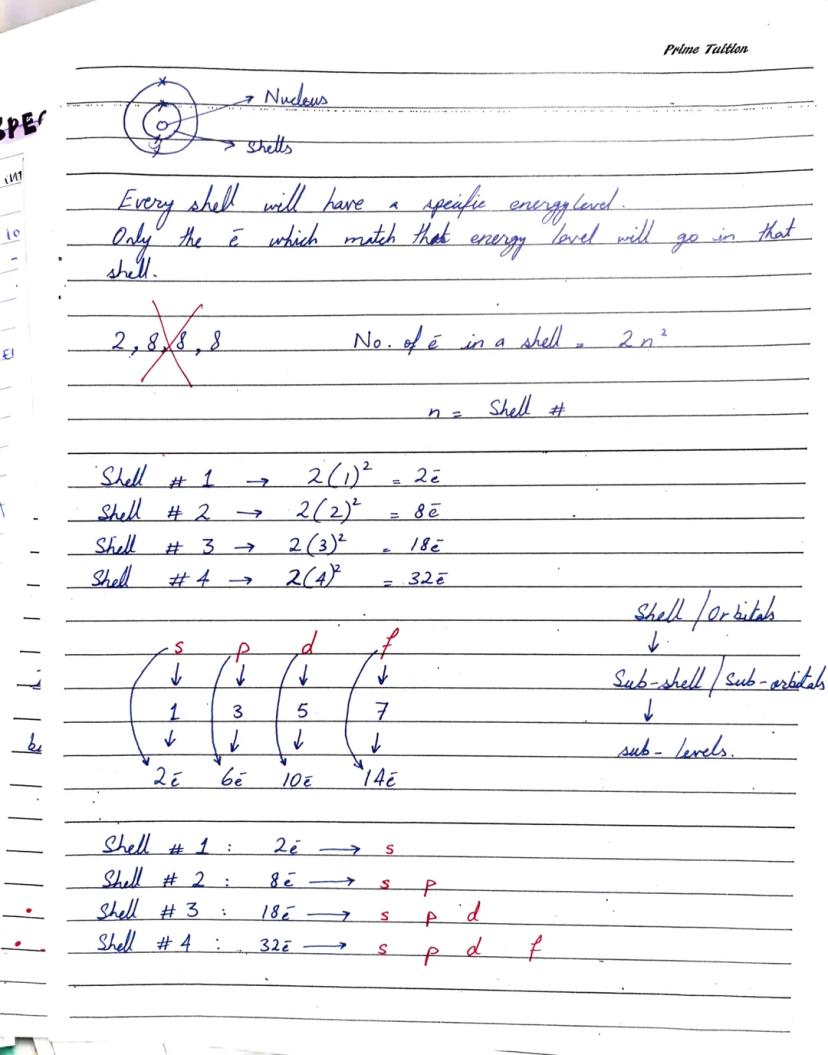 Prime Tuition
Nucleus
Shells
Every shell will have a specific energy level.
Only the ē which match that energy level will go in that
shell.
2, 8, 8, 8
No. of ē in a shell = 2n²
n = Shell #
Shell # 1 → 2(1)² = 2ē
Shell # 2 → 2(2)² = 8ē
Shell # 3 → 2(3)² = 18ē
Shell # 4 → 2(4)² = 32ē
Shell / Orbitals
↓
Sub-shell / Sub-orbitals
↓
sub-levels.
s p d f
↓ ↓ ↓ ↓
1 3 5 7
↓ ↓ ↓ ↓
2ē 6ē 10ē 14ē
Shell # 1 : 2ē → s
Shell # 2 : 8ē → s p
Shell # 3 : 18ē → s p d
Shell # 4 : 32ē → s p d f